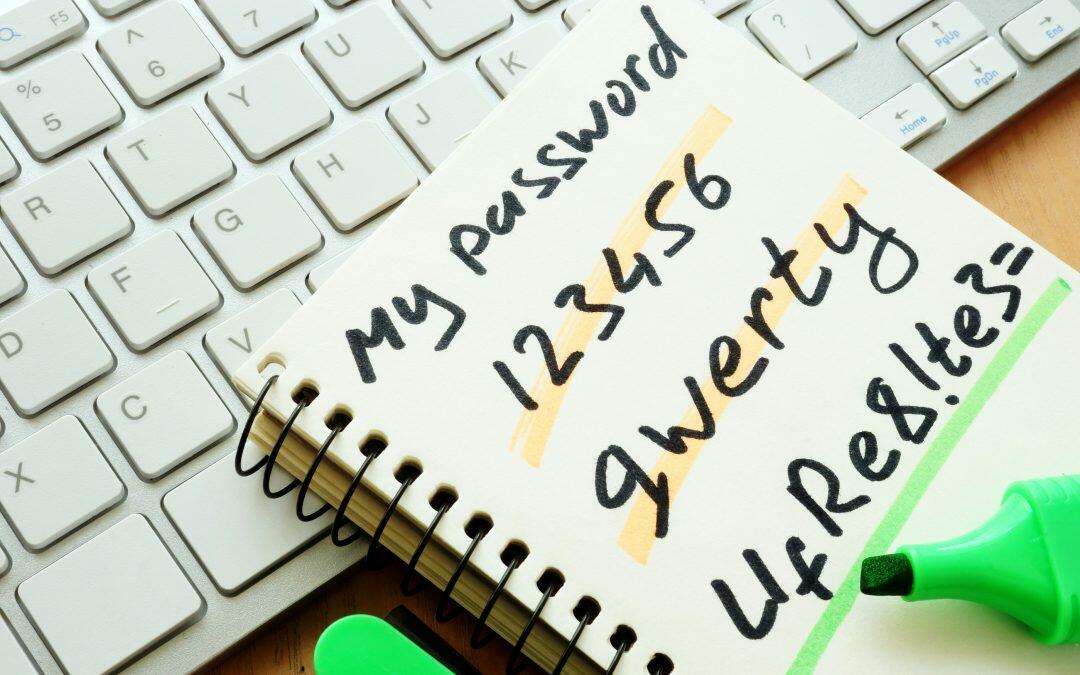 My password
123456
qwerty
UfRe8!te3=
F5
^ 6
7
? /
PgUp
End
% 5
Y
U
K
PgDn
R
T
H
J
Home
F
G
D
C
V
X